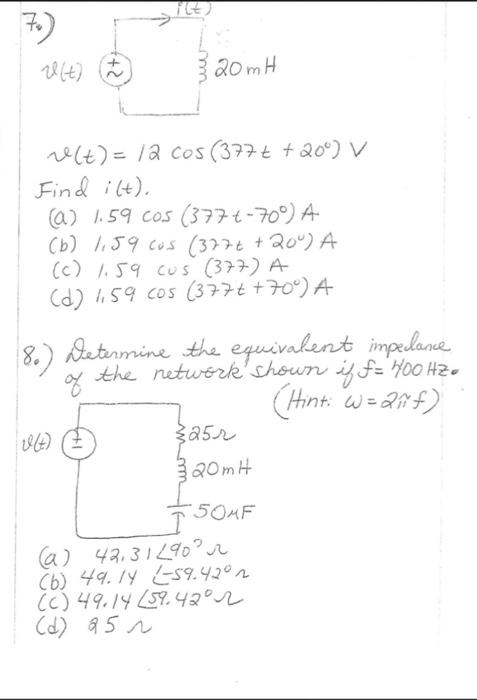 7.)
i(t)
v(t)
+
~
20mH
v(t) = 12 cos (377t + 20°) V
Find i(t).
(a) 1.59 cos (377t - 70°) A
(b) 1.59 cos (377t + 20°) A
(c) 1.59 cos (377) A
(d) 1.59 cos (377t + 70°) A
8.) Determine the equivalent impedance
of the network shown if f = 400 Hz.
(Hint: ω = 2πf)
v(t)
±
25Ω
20mH
50μF
(a) 42.31∠90° Ω
(b) 49.14 ∠-59.42° Ω
(c) 49.14 ∠59.42° Ω
(d) 25 Ω